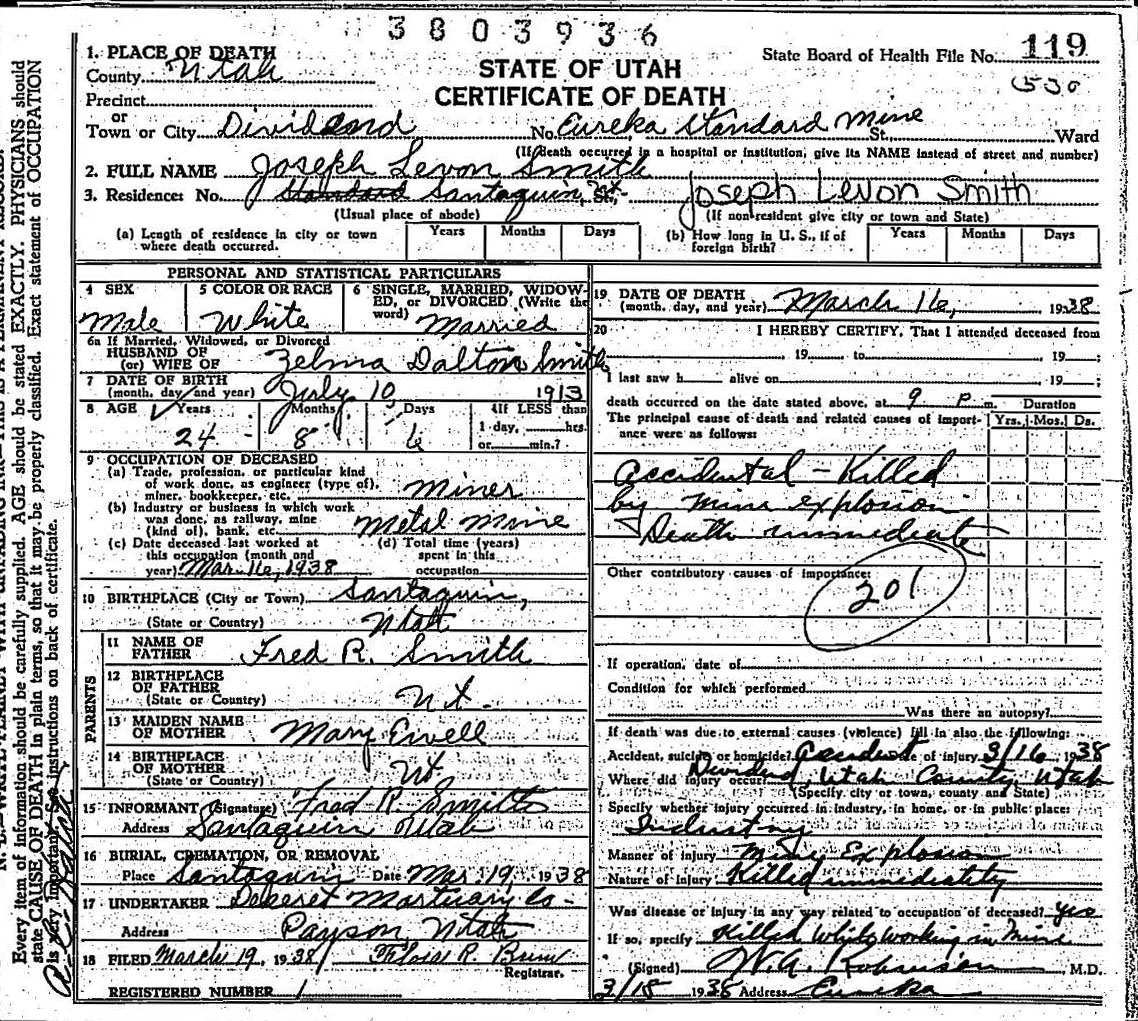 3803936
State Board of Health File No. 119
530
STATE OF UTAH
CERTIFICATE OF DEATH
1. PLACE OF DEATH
County Utah
Precinct
or
Town or City Dividend No. Eureka Standard Mine St. Ward
(If death occurred in a hospital or institution, give its NAME instead of street and number)
2. FULL NAME Joseph Levon Smith
3. Residence: No. Standard Santaquin, Ut. St., Joseph LeVon Smith
(Usual place of abode) (If non-resident give city or town and State)
(a) Length of residence in city or town where death occurred. Years Months Days
(b) How long in U. S., if of foreign birth? Years Months Days
PERSONAL AND STATISTICAL PARTICULARS
4 SEX Male
5 COLOR OR RACE White
6 SINGLE, MARRIED, WIDOWED, or DIVORCED (Write the word) Married
6a If Married, Widowed, or Divorced
HUSBAND OF
(or) WIFE OF Zelma Dalton Smith
7 DATE OF BIRTH
(month, day and year) July 10, 1913
8 AGE Years Months Days If LESS than
1 day, hrs.
24 8 6 or min.?
9 OCCUPATION OF DECEASED
(a) Trade, profession, or particular kind
of work done, as engineer (type of),
miner, bookkeeper, etc. Miner
(b) Industry or business in which work
was done, as railway, mine
(kind of), bank, etc. Metal Mine
(c) Date deceased last worked at
this occupation (month and
year) Mar. 16, 1938
(d) Total time (years)
spent in this
occupation
10 BIRTHPLACE (City or Town) Santaquin,
(State or Country) Utah
PARENTS
11 NAME OF
FATHER Fred R. Smith
12 BIRTHPLACE
OF FATHER
(State or Country) Ut.
13 MAIDEN NAME
OF MOTHER Mary Ewell
14 BIRTHPLACE
OF MOTHER
(State or Country) Ut
15 INFORMANT (Signature) Fred R Smith
Address Santaquin Utah
16 BURIAL, CREMATION, OR REMOVAL
Place Santaquin Date Mar 19, 1938
17 UNDERTAKER Deseret Mortuary Co-
Address Payson, Utah
18 FILED March 19, 1938 R.
Registrar.
REGISTERED NUMBER 1
19 DATE OF DEATH
(month, day, and year) March 16, 1938
20 I HEREBY CERTIFY, That I attended deceased from
19 to 19 ;
I last saw h alive on 19 ;
death occurred on the date stated above, at 9 P m. Duration
The principal cause of death and related causes of importance were as follows: Yrs. Mos. Ds.
Accidental - Killed
by mine explosion
Death immediate
Other contributory causes of importance:
201
If operation, date of
Condition for which performed
Was there an autopsy?
If death was due to external causes (violence) fill in also the following:
Accident, suicide or homicide? Accident Date of injury 3/16 1938
Where did injury occur? Dividend, Utah County, Utah
(Specify city or town, county and State)
Specify whether injury occurred in industry, in home, or in public place:
Industry
Manner of injury Mine Explosion
Nature of injury Killed immediately
Was disease or injury in any way related to occupation of deceased? Yes
If so, specify Killed while working in mine
(Signed) W. A. Robinson M.D.
3/18 1938 Address Eureka
Every item of information should be carefully supplied. AGE should be stated EXACTLY. PHYSICIANS should
state CAUSE OF DEATH in plain terms, so that it may be properly classified. Exact statement of OCCUPATION
is very important. See instructions on back of certificate.